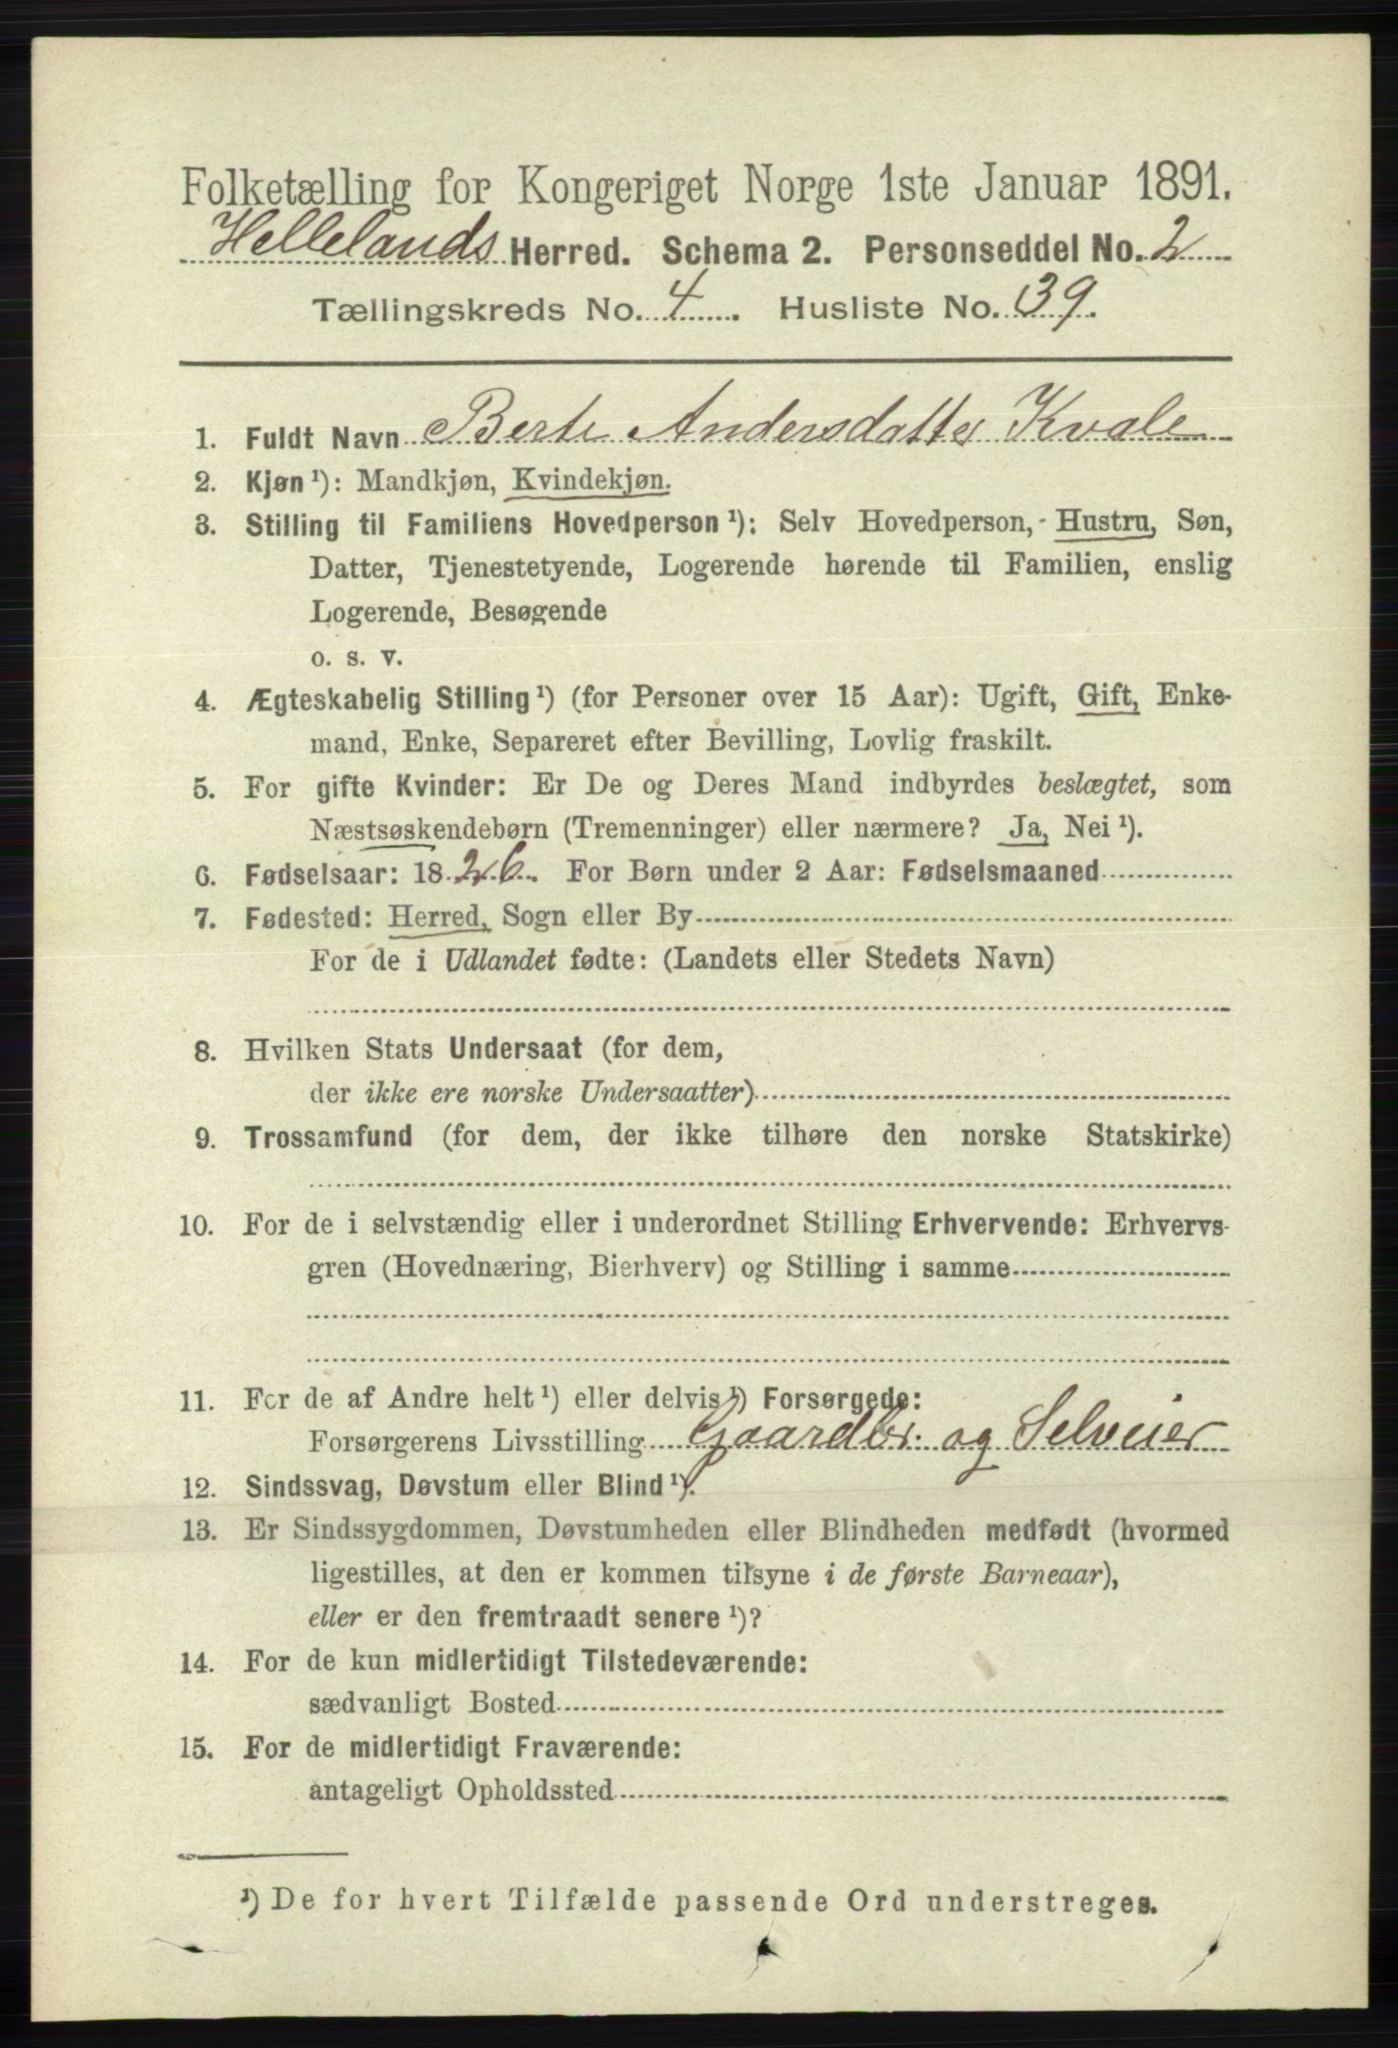 Folketælling for Kongeriget Norge 1ste Januar 1891.
Hellelands Herred. Schema 2. Personseddel No. 2
Tællingskreds No. 4. Husliste No. 39.
1. Fuldt Navn Berte Andersdatter Kvale
2. Kjøn ¹): Mandkjøn, Kvindekjøn.
3. Stilling til Familiens Hovedperson ¹): Selv Hovedperson, Hustru, Søn,
Datter, Tjenestetyende, Logerende hørende til Familien, enslig
Logerende, Besøgende
o. s. v.
4. Ægteskabelig Stilling ¹) (for Personer over 15 Aar): Ugift, Gift, Enke-
mand, Enke, Separeret efter Bevilling, Lovlig fraskilt.
5. For gifte Kvinder: Er De og Deres Mand indbyrdes beslægtet, som
Næstsøskendebørn (Tremenninger) eller nærmere? Ja, Nei ¹).
6. Fødselsaar: 1826. For Børn under 2 Aar: Fødselsmaaned
7. Fødested: Herred, Sogn eller By
For de i Udlandet fødte: (Landets eller Stedets Navn)
8. Hvilken Stats Undersaat (for dem,
der ikke ere norske Undersaatter)
9. Trossamfund (for dem, der ikke tilhøre den norske Statskirke)
10. For de i selvstændig eller i underordnet Stilling Erhvervende: Erhvervs-
gren (Hovednæring, Bierhverv) og Stilling i samme
11. For de af Andre helt ¹) eller delvis ¹) Forsørgede:
Forsørgerens Livsstilling Gaardbr. og Selveier
12. Sindssvag, Døvstum eller Blind ¹).
13. Er Sindssygdommen, Døvstumheden eller Blindheden medfødt (hvormed
ligestilles, at den er kommen tilsyne i de første Barneaar),
eller er den fremtraadt senere ¹)?
14. For de kun midlertidigt Tilstedeværende:
sædvanligt Bosted
15. For de midlertidigt Fraværende:
antageligt Opholdssted
¹) De for hvert Tilfælde passende Ord understreges.